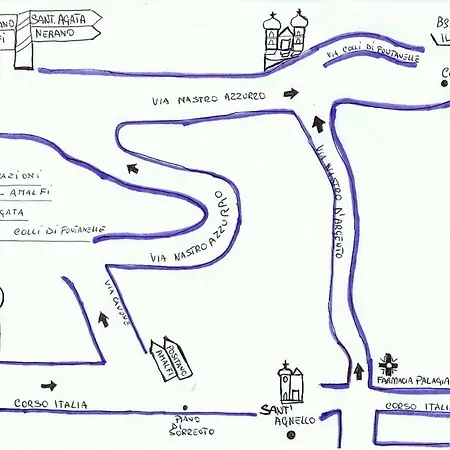 ANO
SANT. AGATA
FI
NERANO
VIA COLLI DI FONTANELLE
B&
IL
CO
VIA NASTRO AZZURRO
VIA NASTRO D'ARGENTO
AZIONI
- AMALFI
GATA
COLLI DI FONTANELLE
VIA NASTRO AZZURRO
VIA CAVONE
POSITANO
AMALFI
FARMACIA PALAGIA
CORSO ITALIA
PIANO
DI
SORRENTO
SANT'
AGNELLO
CORSO ITALIA